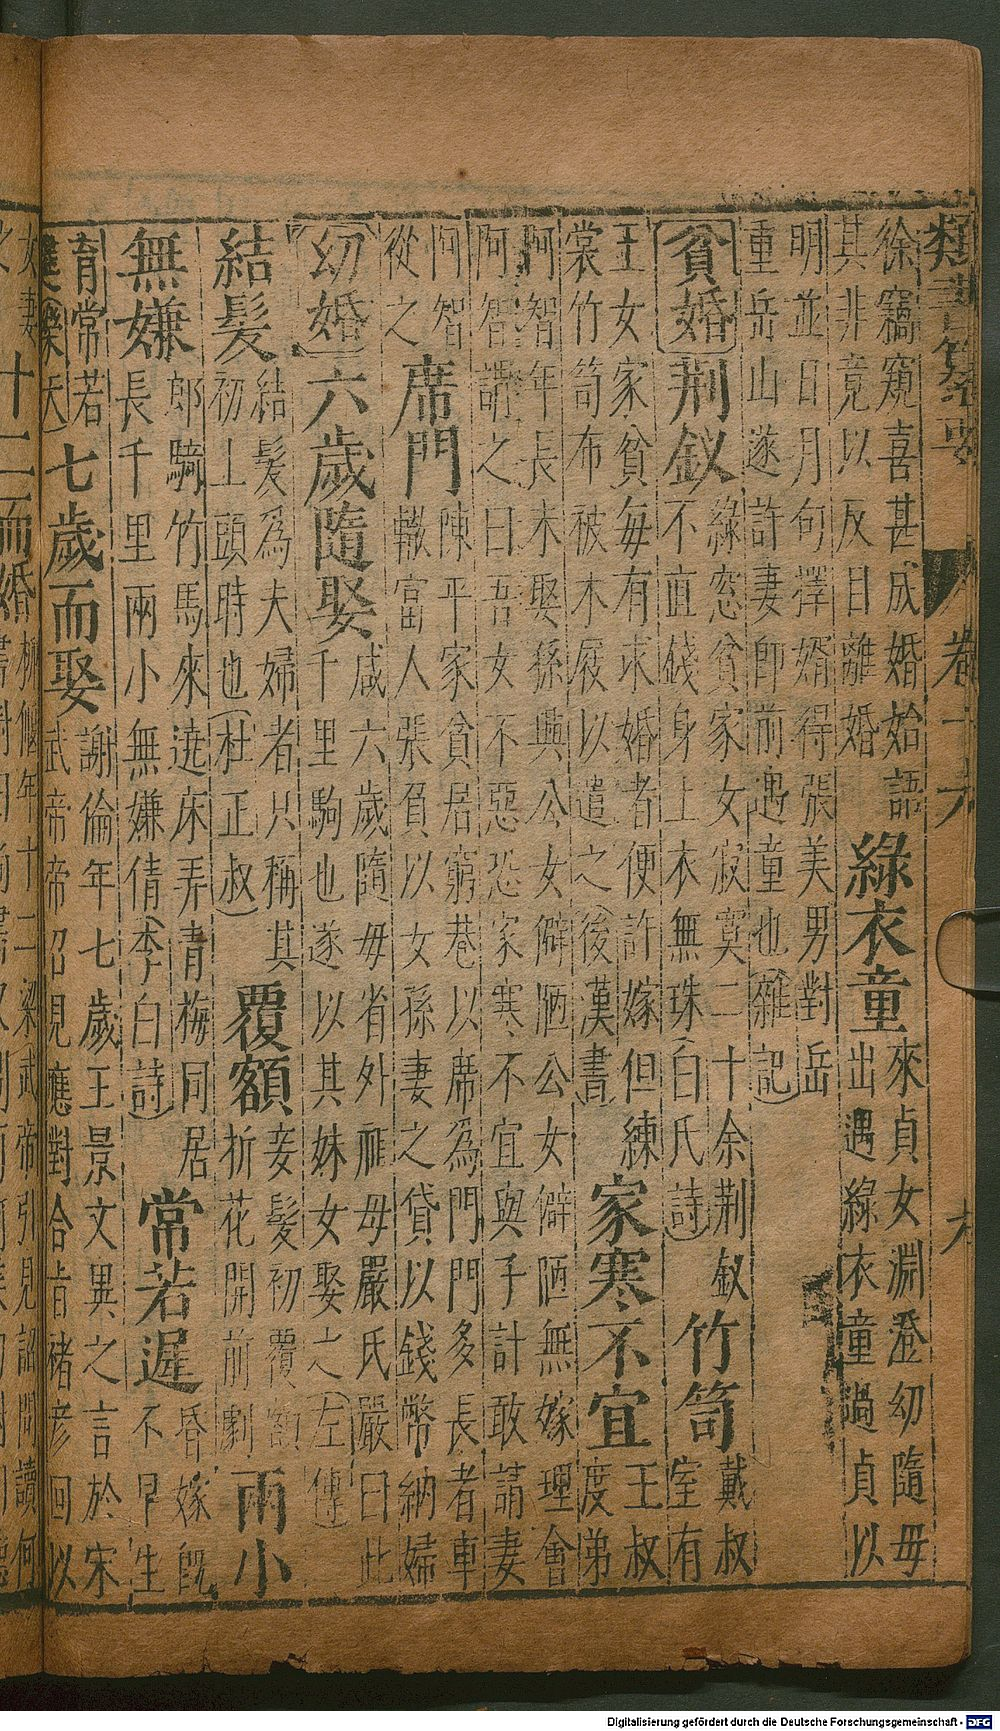 類書纂要 卷十九 六
徐竊窺喜甚成婚始語
其非竟以反目離婚
綠衣童
來貞女淵澄幼隨毋
出遇綠衣童過貞以
明並日月句擇婿得張美男對岳
重岳山遂許妻師前遇童也(雜記)
貧婚 荆釵
緑窓貧家女寂寞二十余荆釵
不直錢身上衣無珠(白氏詩)
竹笥
戴叔
室有
王女家貧每有求婚者便許嫁但練
裳竹笥布被木屐以遣之(後漢書)
家寒不宜
王叔
度弟
阿智年長未娶孫興公女僻陋公女僻陋無嫁理會
阿智謂之曰吾女不惡恐家寒不宜與手計敢請妻
阿智
從之
席門
陳平家貧居窮巷以席為門門多長者車
轍富人張負以女孫妻之貸以錢幣納婦
幼婚 六歲隨娶
咸六歲隨毋省外毋嚴氏嚴曰此
千里駒也遂以其妹女娶之(左傳)
結髮
結髮為夫婦者只稱其
初上頭時也(杜正叔)
覆額
妾髮初覆額
折花開前劇
兩小
無嫌
郎騎竹馬來遶床弄青梅同居
長千里兩小無嫌倩(李白詩)
常若遲
昏嫁旣
不早生
育常若
難(樂天)
七歲而娶
謝倫年七歲王景文異之言於宋
武帝帝召見應對合旨褚彦回以
女妻
之
十二而婚
柳偃年十二梁武帝引見詔問讀何